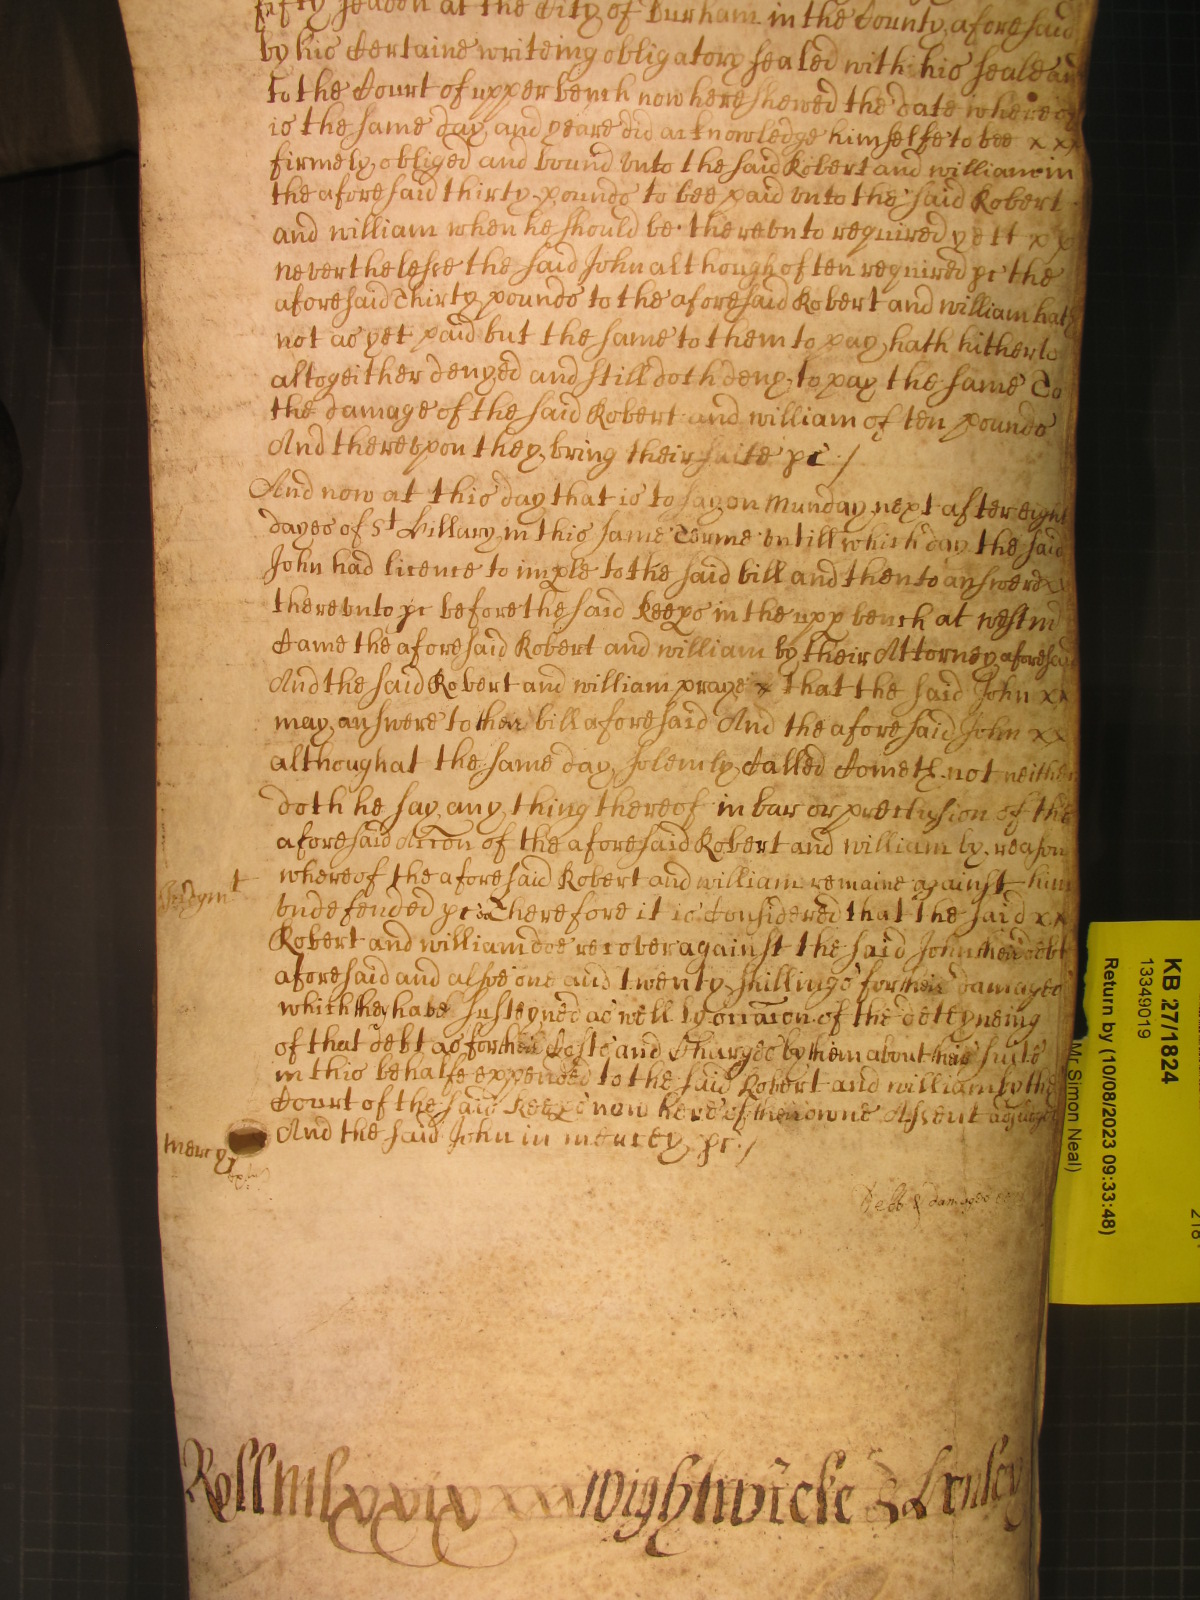 fifty seaven at the City of Durham in the County aforesaid
by his Certaine writeing obligatory sealed with his seale and
to the Court of upper bench now here shewed the date whereof
is the same day and yeare did acknowledge himselfe to bee x x x
firmely obliged and bound vnto the said Robert and william in
the aforesaid thirty pounds to bee paid vnto the said Robert
and william when he should be therevnto required yett x x
neverthelesse the said John although often required pc the
aforesaid Thirty pounds to the aforesaid Robert and william hath
not as yet paid but the same to them to pay hath hitherto
altogeither denyed and still doth deny to pay the same To
the damage of the said Robert and william of ten pounds
And therevpon they bring their suite pc /
And now at this day that is to say on Munday next after eight
dayes of St Hillary in this same Terme vntill which day the said
John had licence to imple to the said bill and then to answere x x
therevnto pc before the said Keeps in the upp bench at westm
Came the aforesaid Robert and william by their Attorney aforesaid
And the said Robert and william praye x that the said John x x
may answere to their bill aforesaid And the aforesaid John x x
although at the same day solemly Called Cometh not neither
doth he say any thing thereof in bar or preclusion of the
aforesaid Accon of the aforesaid Robert and william by reason
whereof the aforesaid Robert and william remaine against him
Judgmt
vndefended pc Therefore it is Considered that the said x x
Robert and william doe recover against the said John their debt
aforesaid and alsoe one and twenty shillings for their damages
which they have susteyned as well by occacon of the deteyneing
of that debt as for their Costs and Charges by them about their suite
in this behalfe expended to the said Robert and william by the
Court of the said Keeps now here of their owne Assent adjudged
And the said John in mercey pc /
mercy
Debt & damages
Roll Mlxxix xxx Wightwicke &
KB 27/1824
13349019
Return by (10/08/2023 09:33:48)
Mr Simon Neal)